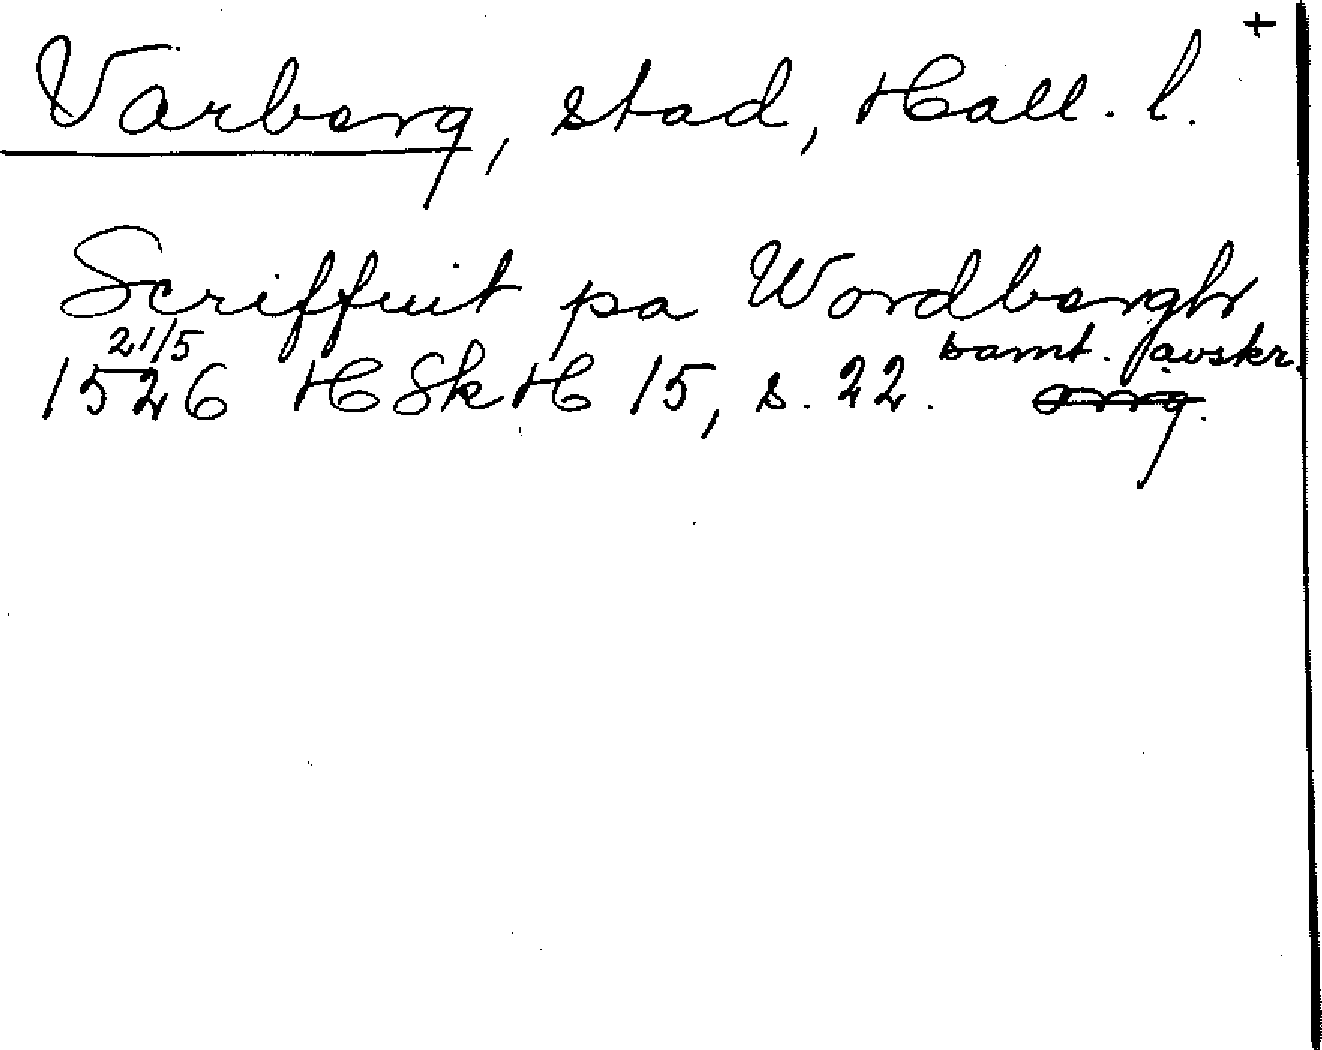 Varberg, stad, Hall. l. +
Scriffuit pa Wordbergh
21/5 samt. avskr.
1526 HSkH 15, s. 22. orig.